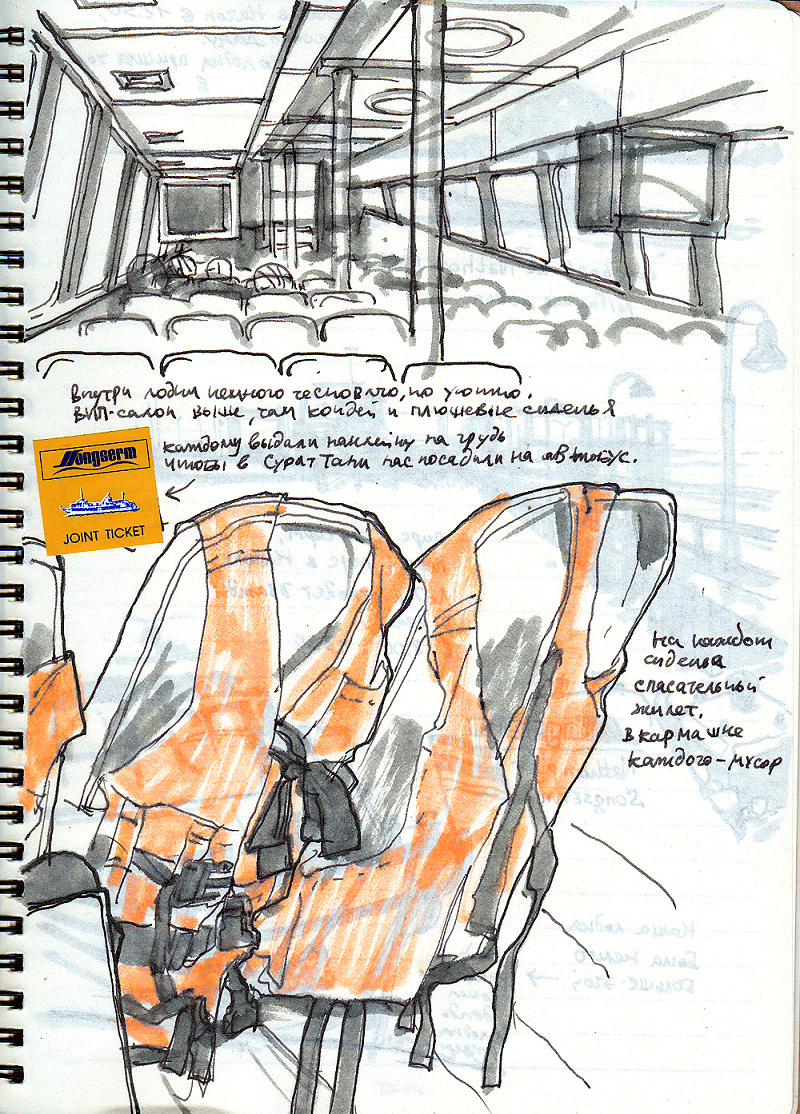 Внутри лодки немного тесновато, но уютно.
ВИП-салон выше, там кондей и плюшевые сиденья
каждому выдали наклейку на грудь
чтобы в Сурат Тани нас посадили на автобус.
Songserm
JOINT TICKET
На каждом
сиденье
спасательный
жилет.
В кармашке
каждого - мусор